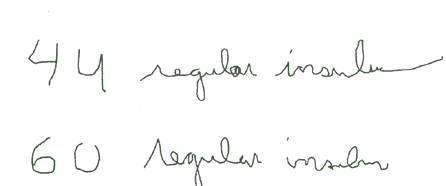 4 U regular insulin
6 U regular insulin